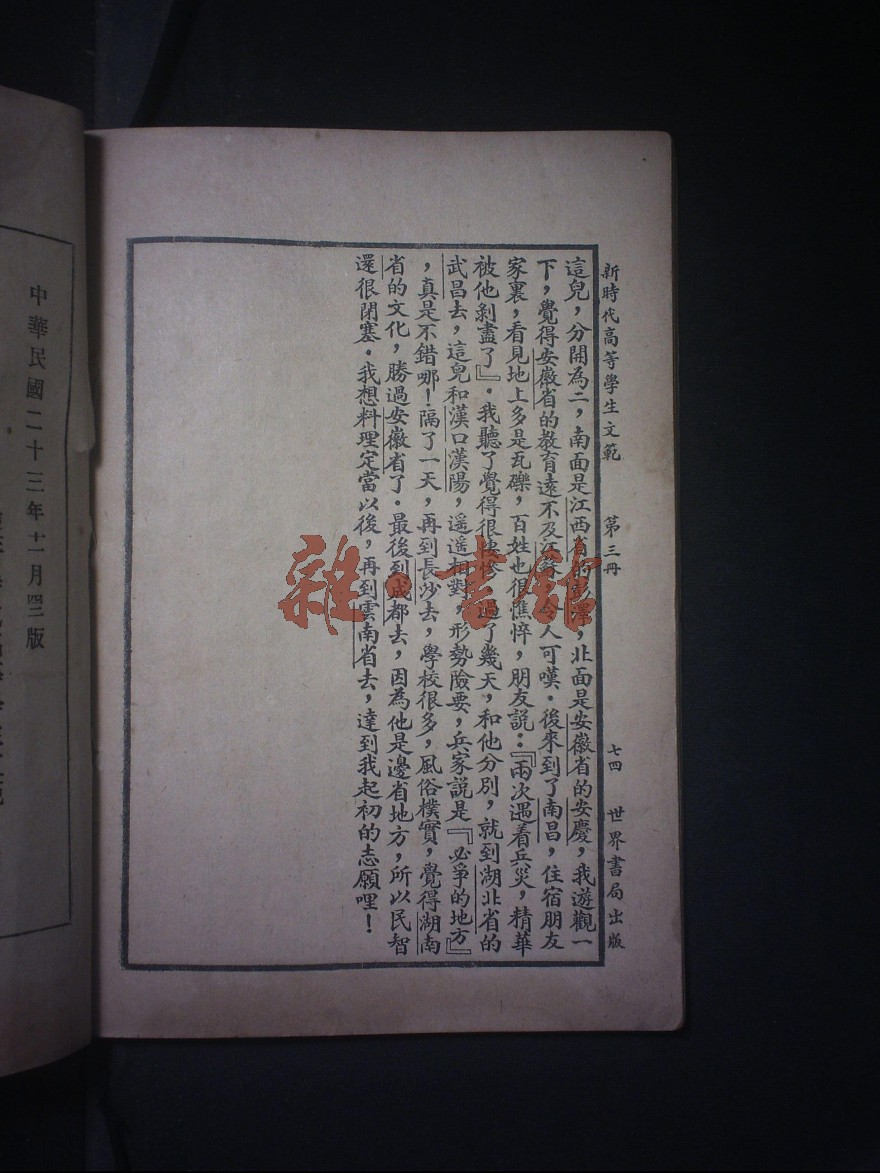 新時代高等學生文範 第三冊 七四 世界書局出版
這兒，分開為二，南面是江西省的彭澤，北面是安徽省的安慶，我遊觀一
下，覺得安徽省的教育遠不及江蘇，令人可嘆．後來到了南昌，住宿朋友
家裏，看見地上多是瓦礫，百姓也很憔悴，朋友説：『兩次遇着兵災，精華
被他剝盡了』．我聽了覺得很悽慘．過了幾天，和他分別，就到湖北省的
武昌去，這兒和漢口漢陽，遥遥相對，形勢險要，兵家説是『必爭的地方』
，真是不錯哪！隔了一天，再到長沙去，學校很多，風俗樸實，覺得湖南
省的文化，勝過安徽省了．最後到成都去，因為他是邊省地方，所以民智
還很閉塞．我想料理定當以後，再到雲南省去，達到我起初的志願哩！
中華民國二十三年十一月四版
雜·書館